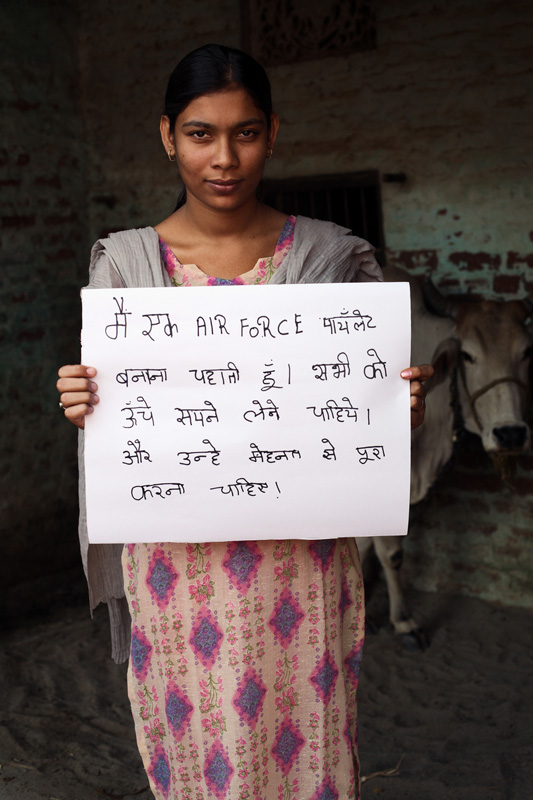 मैं एक AIR FORCE पायँलेट
बनाना चहाती हूँ। सभी को
ऊँचे सपने लेने चाहिये।
और उन्हे मेहनत से पूरा
करना चाहिए!